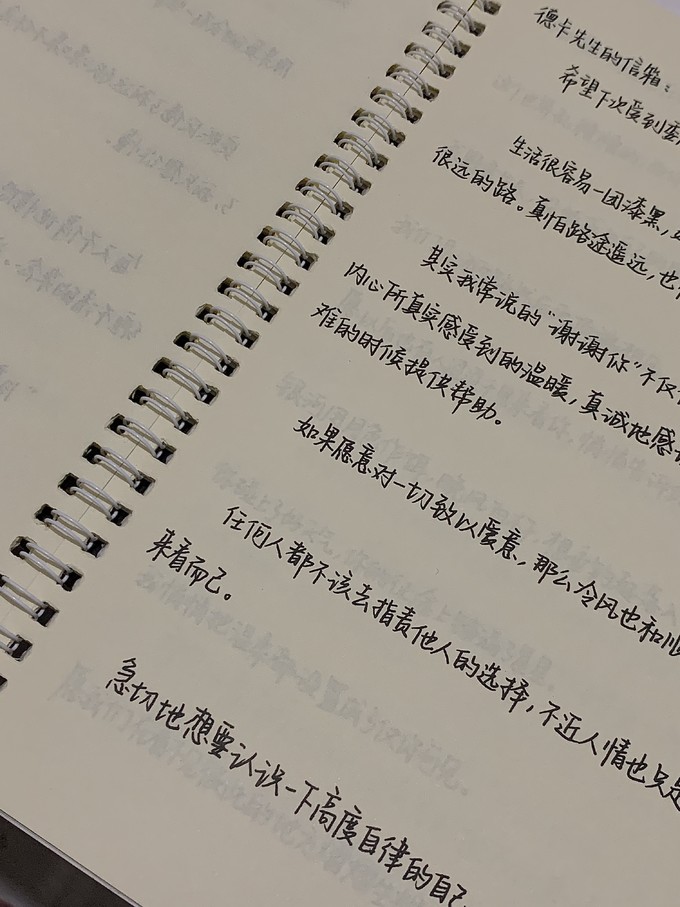 德卡先生的信箱：
希望下次受到委
生活很容易一团漆黑，
很远的路。真怕路途遥远，也
其实我常说的“谢谢你”不仅
内心所真实感受到的温暖，真诚地感谢
难的时候提供帮助。
如果愿意对一切致以爱意，那么冷风也和顺
任何人都不该去指责他人的选择，不近人情也只是
来看而已。
急切地想要认识一下高度自律的自己